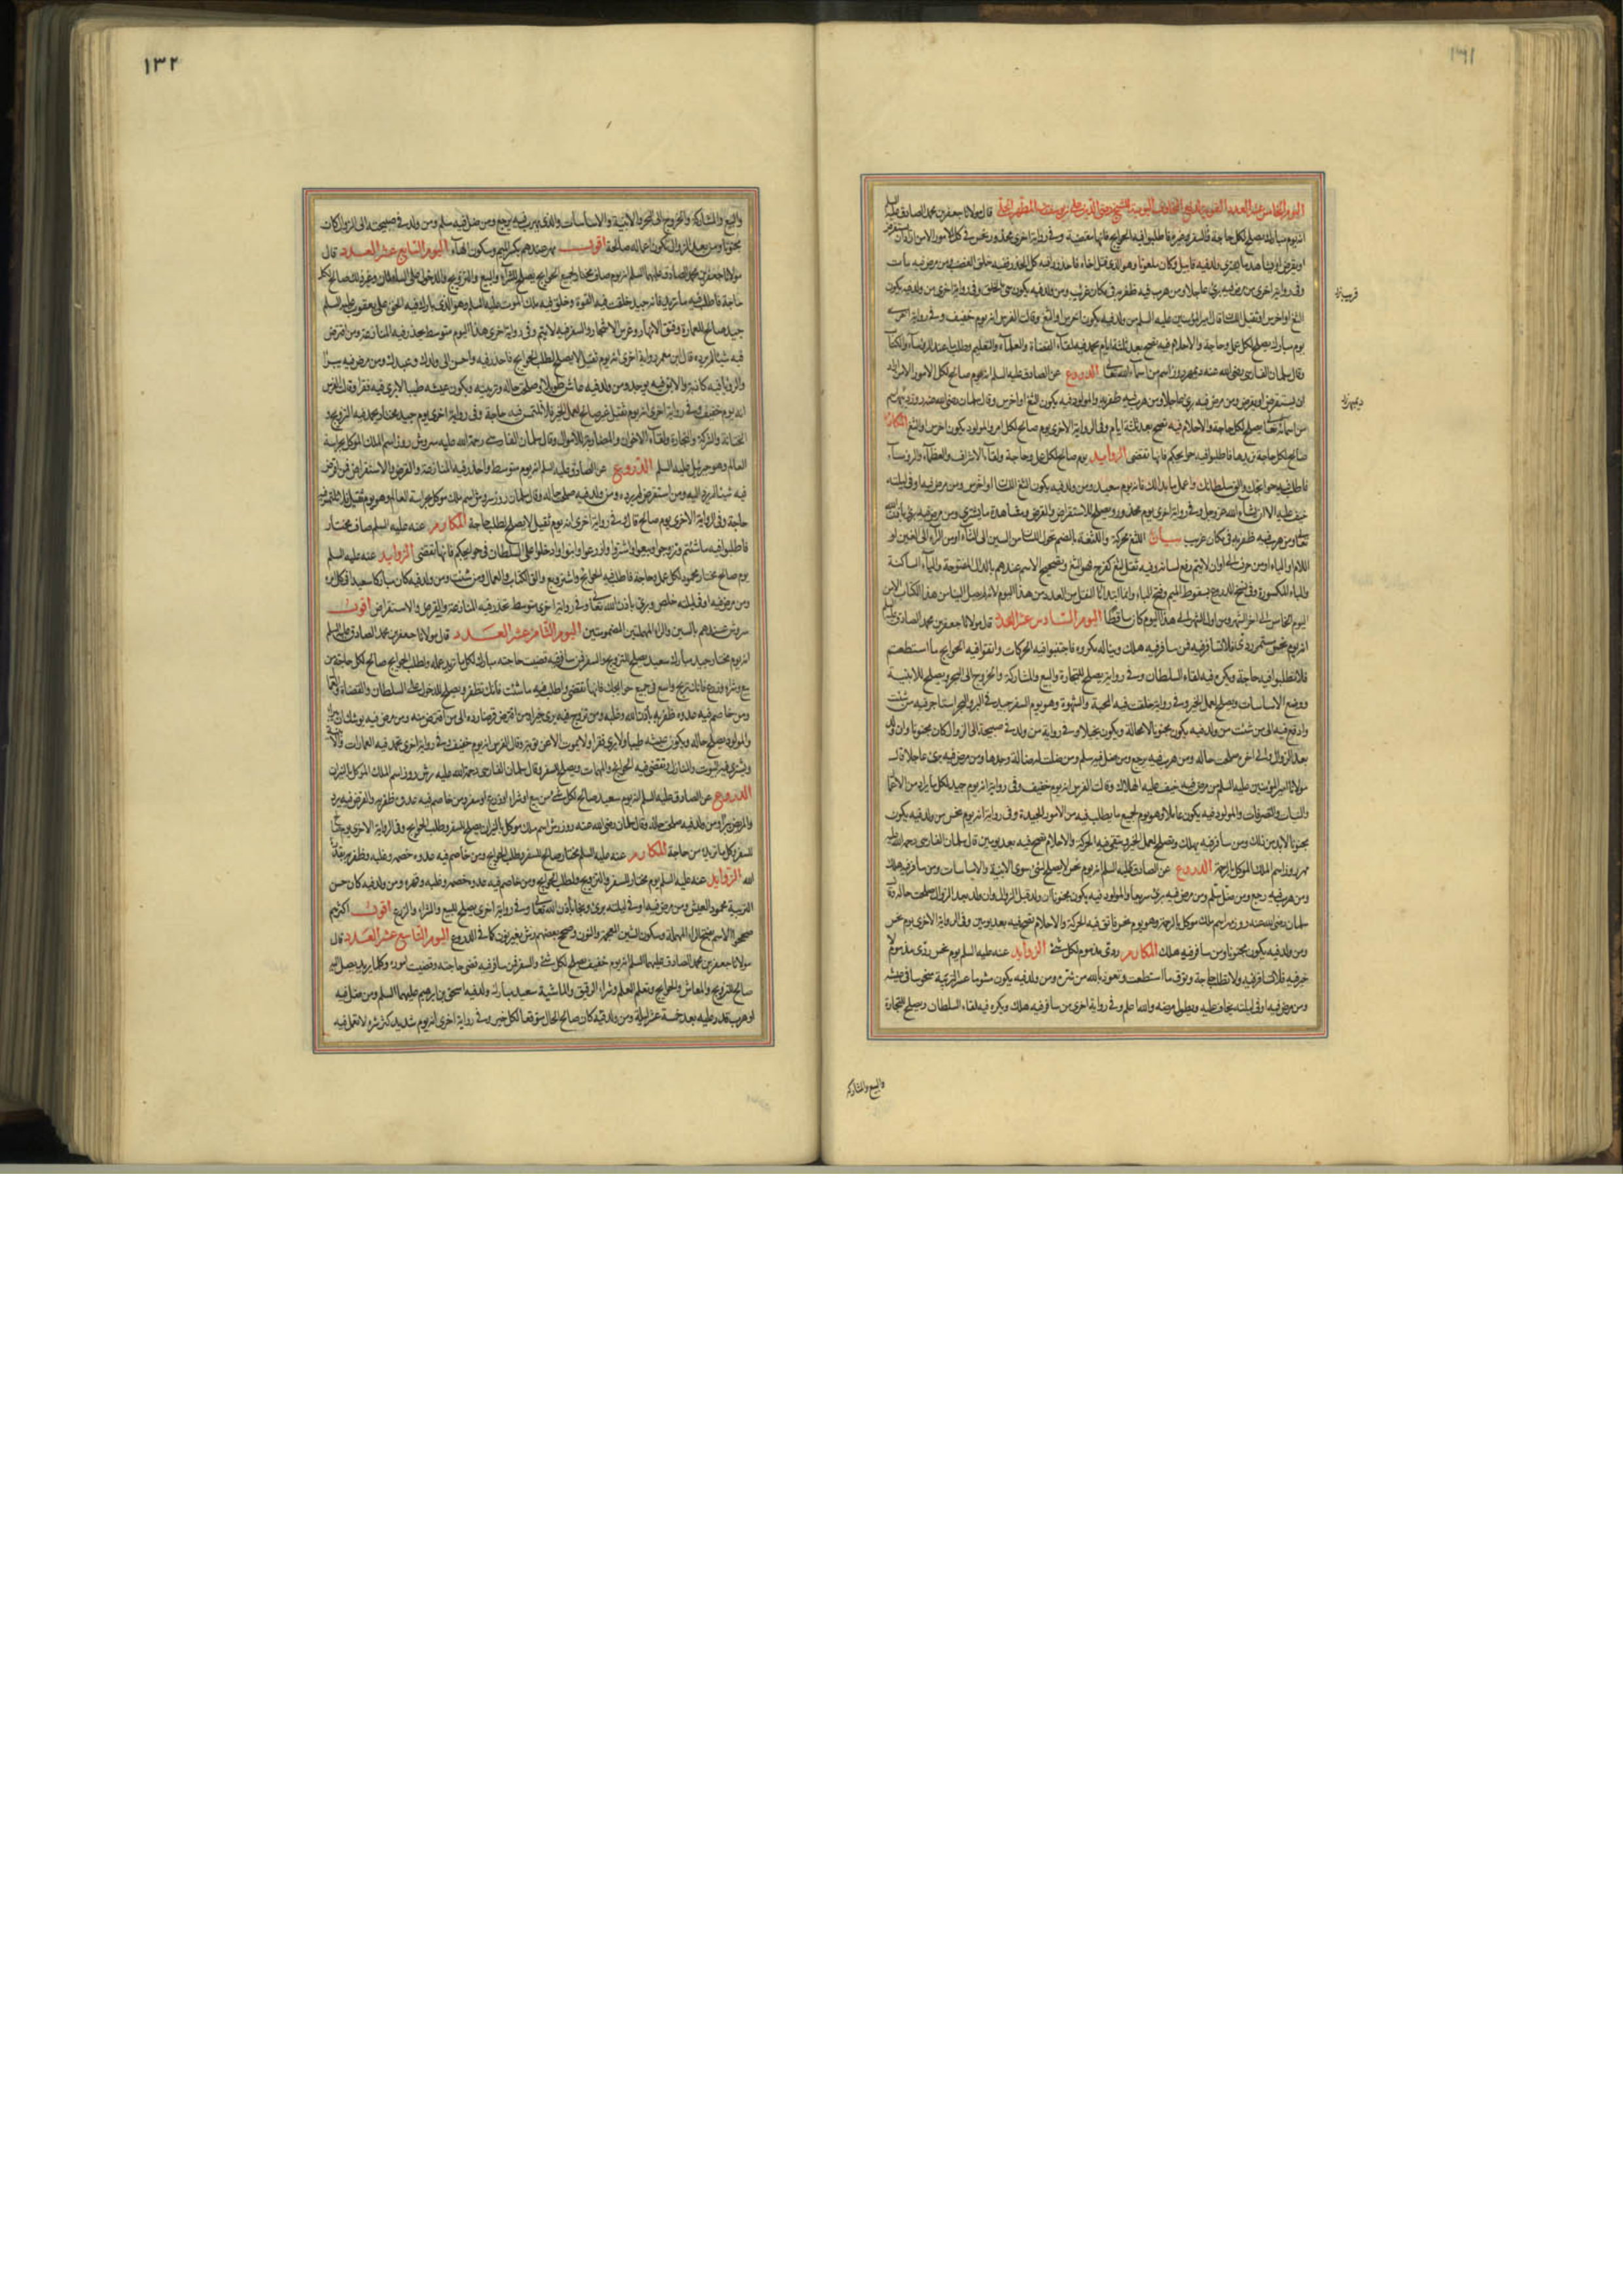 ١٣١
اليوم الخامس عشر العدد القوية لدفع المخاوف اليومية للشيخ رضي الدين علي بن يوسف بن المطهر الحلي قال مولانا جعفر بن محمد الصادق عليه
انه يوم مبارك يصلح لكل حاجة والسفر وغيره فاطلبوا فيه الحوائج فانها مقضية وفي رواية اخرى محذور نحس في كل الامور الا من اراد ان يستقرض
او يقرض او يشاهد ما يشتري ولد فيه قابيل وكان ملعونا وهو الذي قتل اخاه فاحذروا فيه كل الحذر ففيه خلق الغضب ومن مرض فيه مات
وفي رواية اخرى من مرض فيه برئ عاجلا ومن هرب فيه ظفر به في مكان غريب ومن ولد فيه يكون سيئ الخلق وفي رواية اخرى من ولد فيه يكون
الثغ او اخرس او ثقيل اللسان قال امير المؤمنين عليه السلم من ولد فيه يكون اخرس او الثغ وقالت الفرس انه يوم خفيف وفي رواية اخرى
يوم مبارك يصلح لكل عمل وحاجة والاحلام فيه تصح بعد ثلثة ايام يحمد فيه لقاء القضاة والعلماء والتعليم وطلب ما عند الرؤساء والكتاب
وقال سلمان الفارسي رضي الله عنه ديمهر روز اسم من اسماء الله تعالى الدروع عن الصادق عليه السلم انه يوم صالح لكل الامور الا من اراد
ان يستقرض او يقرض ومن مرض فيه برئ عاجلا ومن هرب فيه ظفر به والمولود فيه يكون الثغ او اخرس وقال سلمان رضي الله عنه
من اسمائه تعالى يصلح لكل حاجة والاحلام فيه تصح بعد ثلثة ايام وفي الرواية الاخرى يوم صالح لكل امر والمولود يكون اخرس او الثغ المكارم
صالح لكل حاجة تريدها فاطلبوا فيه حوائجكم فانها تقضى الزوايد يوم صالح لكل عمل وحاجة ولقاء الاشراف والعظماء والرؤساء
فاطلب فيه حوائجك والق سلطانك واعمل ما بدا لك فانه يوم سعيد ومن ولد فيه يكون الثغ اللسان او اخرس ومن مرض فيه او في ليلته
خيف عليه الا ان يشاء الله عز وجل وفي رواية اخرى يوم محذور ويصلح للاستقراض والقرض ومشاهدة ما يشتري ومن مرض فيه برئ باذن الله
تعالى ومن هرب فيه ظفر به في مكان غريب بيان اللثغ محركة واللثغة بالضم تحول اللسان من السين الى الثاء او من الراء الى الغين او
اللام او الياء او من حرف الى حرف او ان لا يتم رفع لسانه وفيه ثقل لثغ كفرح فهو الثغ وتصحيح الاسم عندهم بالدال المفتوحة والياء الساكنة
اليوم السادس عشر العدد قال مولانا جعفر بن محمد الصادق عليه
انه يوم نحس مستمر ردي فلا تسافر فيه فمن سافر فيه هلك ويناله مكروه فاجتنبوا فيه الحركات واتقوا فيه الحوائج ما استطعتم
فلا تطلبوا فيه حاجة ويكره فيه لقاء السلطان وفي رواية يصلح للتجارة والبيع والمشاركة والخروج الى البحر ويصلح للابنية
ووضع الاساسات ويصلح لعمل الخير وفي رواية خلقت فيه المحبة والشهوة وهو يوم السفر جيد في البر والبحر استاجر فيه من شئت
وادفع فيه الى من شئت من ولد فيه يكون مجنونا لا محالة ويكون بخيلا وفي رواية من ولد في صبيحته الى الزوال كان مجنونا وان ولد
بعد الزوال الى اخره صلحت حاله ومن هرب فيه يرجع ومن ضل فيه سلم ومن ضلت له ضالة وجدها ومن مرض فيه برئ عاجلا قال
مولانا امير المؤمنين عليه السلم من مرض فيه خيف عليه الهلاك وقالت الفرس انه يوم خفيف وفي رواية انه يوم جيد لكل ما يراد من الاعمال
والنيات والتصرفات والمولود فيه يكون عاملا وهو يوم لجميع ما يطلب فيه من الامور الجيدة وفي رواية انه يوم نحس من ولد فيه يكون
مجنونا لا بد من ذلك ومن سافر فيه يهلك ويصلح لعمل الخير ويتقى فيه الحركة والاحلام تصح فيه بعد يومين قال سلمان الفارسي رحمة الله عليه
مهر روز اسم الملك الموكل بالرحمة الدروع عن الصادق عليه السلم انه يوم نحس لا يصلح لشئ سوى الابنية والاساسات ومن سافر فيه هلك
ومن هرب فيه رجع ومن ضل سلم ومن مرض فيه برئ سريعا والمولود فيه يكون مجنونا ان ولد قبل الزوال وان ولد بعد الزوال صلحت حاله وقال
سلمان رضي الله عنه روز مهر اسم ملك موكل بالرحمة وهو يوم نحس فاتق فيه الحركة والاحلام تصح فيه بعد يومين وفي الرواية الاخرى يوم نحس
ومن ولد فيه يكون مجنونا ومن سافر فيه هلك المكارم ردي مذموم لكل شئ الزوايد عنه عليه السلم يوم نحس ردي مذموم لا
خير فيه فلا تسافر فيه ولا تطلب حاجة وتوق ما استطعت وتعوذ بالله من شره ومن ولد فيه يكون مشوما عسر التربية منحوسا في عيشه
ومن مرض فيه او في ليلته يخاف عليه ويطول مرضه والله اعلم وفي رواية اخرى من سافر فيه هلك ويكره فيه لقاء السلطان ويصلح للتجارة
والبيع والمشاركة
١٣٢
والبيع والمشاركة والخروج الى البحر والابنية والاساسات والذي يهرب فيه يرجع ومن ضل فيه سلم ومن ولد في صبيحته الى الزوال كان
مجنونا ومن بعد الزوال تكون احواله صالحة اقول مهر عندهم بكسر الميم وسكون الهاء اليوم السابع عشر العدد قال
مولانا جعفر بن محمد الصادق عليهما السلم انه يوم صاف مختار لجميع الحوائج يصلح للشراء والبيع والتزويج والدخول على السلطان وغير ذلك صالح لكل
حاجة فاطلب فيه ما تريد فانه جيد خلقت فيه القوة وخلق فيه ملك الموت عليه السلم وهو الذي بارك فيه الحق على يعقوب عليه السلم
جيد صالح للعمارة وفتق الانهار وغرس الاشجار والسفر فيه لا يتم وفي رواية اخرى هذا اليوم متوسط يحذر فيه المنازعة ومن اقترض
فيه شيئا لم يرده قال ابن معمر رواية اخرى انه يوم ثقيل لا يصلح لطلب الحوائج فاحذر فيه واحسن الى ولدك وعبدك ومن مرض فيه يبرأ
الختانة والشركة والتجارة ولقاء الاخوان والمضاربة للاموال وقال سلمان الفارسي رحمة الله عليه سروش روز اسم الملك الموكل بحراسة
العالم وهو جبرئيل عليه السلم الدروع عن الصادق عليه السلم انه يوم متوسط واحذر فيه المنازعة والقرض والاستقراض فمن اقرض
فيه شيئا لم يرد اليه ومن استقرض لم يرده ومن ولد فيه صلح حاله وقال سلمان روز سروش اسم ملك موكل بحراسة العالم وهو يوم ثقيل فلا تلتمس فيه
حاجة وفي الرواية الاخرى يوم صالح قال وفي رواية اخرى انه يوم ثقيل لا يصلح لطلب حاجة المكارم عنه عليه السلم صاف مختار
فاطلبوا فيه ما شئتم وتزوجوا وبيعوا واشتروا وازرعوا وابنوا وادخلوا على السلطان في حوائجكم فانها تقضى الزوايد عنه عليه السلم
يوم صالح مختار محمود لكل عمل وحاجة فاطلب فيه الحوائج واشتر وبع والق الكتاب والعمال ومن شئت ومن ولد فيه كان مباركا سعيدا في كل امره
ومن مرض فيه او في ليلته خلص وبرئ باذن الله تعالى وفي رواية اخرى متوسط تحذر فيه المنازعة والقرض والاستقراض اقول
سروش عندهم بالسين والراء المهملتين المضمومتين اليوم الثامن عشر العدد قال مولانا جعفر بن محمد الصادق عليه السلم
انه يوم مختار جيد مبارك سعيد يصلح للتزويج والسفر فمن سافر فيه قضيت حاجته مبارك لكل ما تريد عمله ولطلب الحوائج صالح لكل حاجة من
بيع وشراء وزرع فانك تربح واسع في جميع حوائجك فانها تقضى واطلب فيه ما شئت فانك تظفر ويصلح للدخول على السلطان والقضاة والعمال
ومن خاصم فيه عدوه ظفر به باذن الله وغلبه ومن تزوج فيه يرى خيرا ومن اقترض قرضا رده الى من اقترض منه ومن مرض فيه يوشك ان يبرأ
والمولود يصلح حاله ويكون عيشه طيبا ولا يرى فقرا ولا يموت الا عن توبة وقالت الفرس انه يوم خفيف وفي رواية اخرى تحمد فيه العمارات والابنية
ويشترى فيه البيوت والمنازل وتقضى فيه الحوائج والمهمات ويصلح للسفر وقال سلمان الفارسي رحمة الله عليه رش روز اسم الملك الموكل بالنيران
الدروع عن الصادق عليه السلم انه يوم سعيد صالح لكل شئ من بيع او شراء او زرع او سفر ومن خاصم فيه عدوه ظفر به والقرض فيه يرد
والمريض يبرأ ومن ولد فيه صلحت حاله وقال سلمان رضي الله عنه روز رش اسم ملك موكل بالنيران يصلح للسفر وطلب الحوائج وفي الرواية الاخرى يوم
للسفر وكل ما تريد من حاجة المكارم عنه عليه السلم مختار صالح للسفر وطلب الحوائج ومن خاصم فيه عدوه خصمه وغلبه وظفر به بقدرة
الله الزوايد عنه عليه السلم يوم مختار للسفر والتزويج ولطلب الحوائج ومن خاصم فيه عدوه خصمه وغلبه وقهره ومن ولد فيه كان حسن
التربية محمود العيش ومن مرض فيه او في ليلته برئ ونجا باذن الله تعالى وفي رواية اخرى يصلح للبيع والشراء والزرع اقول اكثرهم
صححوا الاسم بفتح الراء المهملة وسكون الشين المعجمة والنون وصحح بعضهم رش بغير نون كما في الدروع اليوم التاسع عشر العدد قال
مولانا جعفر بن محمد الصادق عليهما السلم انه يوم خفيف يصلح لكل شئ والسفر فمن سافر فيه قضى حاجته وقضيت اموره وكلما يريد يصل اليه
صالح للتزويج والمعاش والحوائج وتعلم العلم وشراء الرقيق والماشية سعيد مبارك ولد فيه اسحق بن ابرهيم عليهما السلم ومن ضل فيه
او هرب قدر عليه بعد خمسة عشر ليلة ومن ولد فيه كان صالح الحال متوقعا لكل خير وفي رواية اخرى انه يوم شديد كثير شره لا تعمل فيه